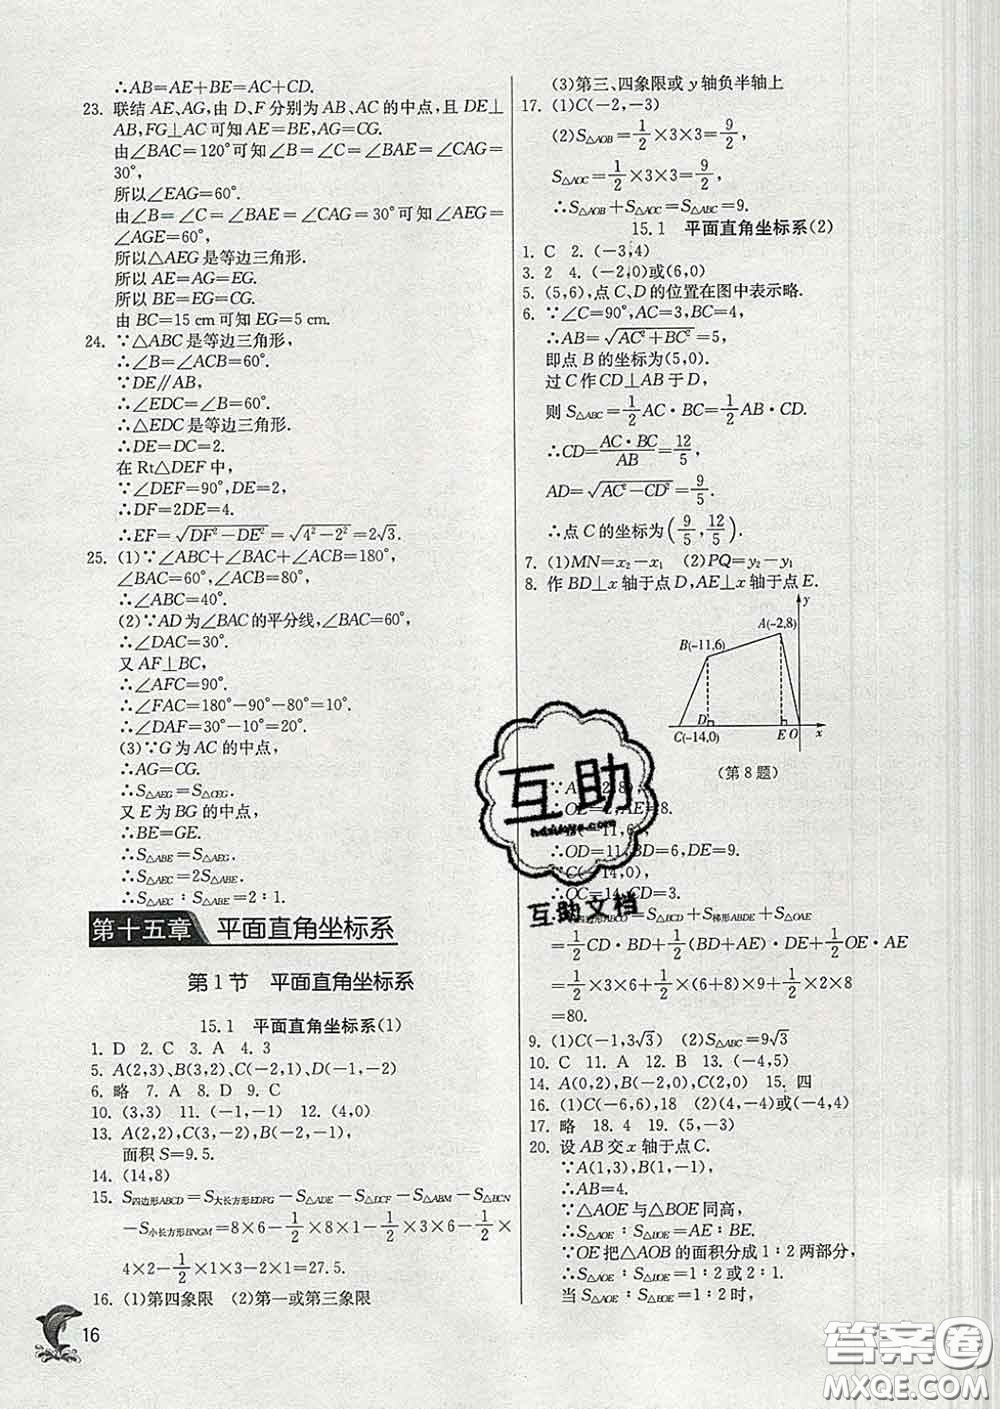 ∴AB=AE+BE=AC+CD.
23. 联结 AE、AG,由 D、F 分别为 AB、AC 的中点,且 DE⊥
AB,FG⊥AC 可知 AE=BE,AG=CG.
由∠BAC=120°可知∠B=∠C=∠BAE=∠CAG=
30°,
所以∠EAG=60°.
由∠B=∠C=∠BAE=∠CAG=30°可知∠AEG=
∠AGE=60°,
所以△AEG 是等边三角形.
所以 AE=AG=EG.
所以 BE=EG=CG.
由 BC=15 cm 可知 EG=5 cm.
24. ∵△ABC 是等边三角形,
∴∠B=∠ACB=60°.
∵DE∥AB,
∴∠EDC=∠B=60°.
∴△EDC 是等边三角形.
∴DE=DC=2.
在 Rt△DEF 中,
∵∠DEF=90°,DE=2,
∴DF=2DE=4.
∴EF=√(DF²-DE²)=√(4²-2²)=2√3.
25. (1)∵∠ABC+∠BAC+∠ACB=180°,
∠BAC=60°,∠ACB=80°,
∴∠ABC=40°.
(2)∵AD 为∠BAC 的平分线,∠BAC=60°,
∴∠DAC=30°.
又 AF⊥BC,
∴∠AFC=90°.
∴∠FAC=180°-90°-80°=10°.
∴∠DAF=30°-10°=20°.
(3)∵G 为 AC 的中点,
∴AG=CG.
∴S△AEG=S△CEG.
又 E 为 BG 的中点,
∴BE=GE.
∴S△ABE=S△AEG.
∴S△AEC=2S△ABE.
∴S△AEC∶S△ABE=2∶1.
第十五章 平面直角坐标系
第1节 平面直角坐标系
15.1 平面直角坐标系(1)
1. D 2. C 3. A 4. 3
5. A(2,3)、B(3,2)、C(-2,1)、D(-1,-2)
6. 略 7. A 8. D 9. C
10. (3,3) 11. (-1,-1) 12. (4,0)
13. A(2,2),C(3,-2),B(-2,-1),
面积 S=9.5.
14. (14,8)
15. S四边形ABCD=S大长方形EDFG-S△ADE-S△DCF-S△ABM-S△BCN
-S小长方形BNGM=8×6-1/2×8×1-1/2×3×6-1/2×
4×2-1/2×1×3-2×1=27.5.
16. (1)第四象限 (2)第一或第三象限
16
(3)第三、四象限或 y 轴负半轴上
17. (1)C(-2,-3)
(2)S△AOB=1/2×3×3=9/2,
S△AOC=1/2×3×3=9/2,
∴S△AOB+S△AOC=S△ABC=9.
15.1 平面直角坐标系(2)
1. C 2. (-3,4)
3. 2 4. (-2,0)或(6,0)
5. (5,6),点 C、D 的位置在图中表示略.
6. ∵∠C=90°,AC=3,BC=4,
∴AB=√(AC²+BC²)=5,
即点 B 的坐标为(5,0).
过 C 作 CD⊥AB 于 D,
则 S△ABC=1/2AC·BC=1/2AB·CD.
∴CD=AC·BC/AB=12/5,
AD=√(AC²-CD²)=9/5.
∴点 C 的坐标为(9/5,12/5).
7. (1)MN=x₂-x₁ (2)PQ=y₂-y₁
8. 作 BD⊥x 轴于点 D,AE⊥x 轴于点 E.
y
A(-2,8)
B(-11,6)
D
C(-14,0) E O x
(第 8 题)
∵A(-2,8),
∴OE=2,AE=8.
∵B(-11,6),
∴OD=11,BD=6,DE=9.
∵C(-14,0),
∴OC=14,CD=3.
S四边形ABCO=S△BCD+S梯形ABDE+S△OAE
=1/2CD·BD+1/2(BD+AE)·DE+1/2OE·AE
=1/2×3×6+1/2×(6+8)×9+1/2×2×8
=80.
9. (1)C(-1,3√3) (2)S△ABC=9√3
10. C 11. A 12. B 13. (-4,5)
14. A(0,2),B(-2,0),C(2,0) 15. 四
16. (1)C(-6,6),18 (2)(4,-4)或(-4,4)
17. 略 18. 4 19. (5,-3)
20. 设 AB 交 x 轴于点 C.
∵A(1,3),B(1,-1),
∴AB=4.
∵△AOE 与△BOE 同高,
∴S△AOE∶S△BOE=AE∶BE.
∵OE 把△AOB 的面积分成 1∶2 两部分,
∴S△AOE∶S△BOE=1∶2 或 2∶1.
当 S△AOE∶S△BOE=1∶2 时,
互助
互助文档
答案圈
MXQE.COM